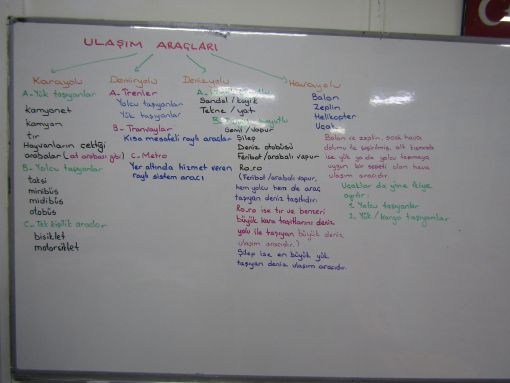 ULAŞIM ARAÇLARI
Karayolu
A- Yük taşıyanlar
kamyonet
kamyon
tır
Hayvanların çektiği
arabalar (at arabası gibi)
B- Yolcu taşıyanlar
taksi
minibüs
midibüs
otobüs
C- Tek kişilik araçlar
bisiklet
motorsiklet
Demiryolu
A- Trenler
Yolcu taşıyanlar
Yük taşıyanlar
B- Tramvaylar
Kısa mesafeli raylı araçlar
C- Metro
Yer altında hizmet veren
raylı sistem aracı
Denizyolu
A-
Sandal / kayık
Tekne / yat
Gemi / vapur
Şilep
Deniz otobüsü
Feribot / arabalı vapur
Ro.ro
(Feribot / arabalı vapur,
hem yolcu hem de araç
taşıyan deniz taşıtlıdır.
Ro.ro ise tır ve benzeri
büyük kara taşıtlarını deniz
yolu ile taşıyan büyük deniz
ulaşım aracıdır.)
Şilep ise en büyük yük
taşıyan deniz ulaşım aracıdır.
Havayolu
Balon
Zeplin
Helikopter
Uçak
Balon ve zeplin, sıcak hava
dolumu ile şişirilmiş, alt kısmında
ise yük ya da yolcu taşımaya
uygun bir sepeti olan hava
ulaşım aracıdır.
Uçaklar da yine ikiye
ayrılır:
1. Yolcu taşıyanlar
2. Yük / Kargo taşıyanlar